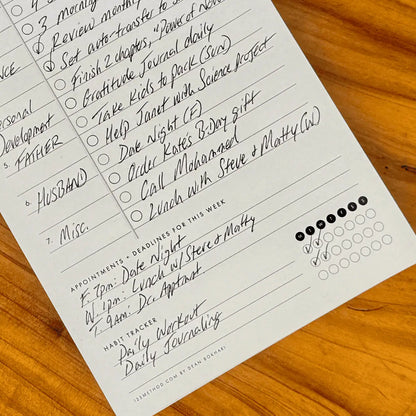 3 morning
Review monthly
Set auto-transfer to
Finish 2 chapters, "Power of Now"
NCE
Gratitude Journal daily
Personal
Development
Take Kids to Park (SUN)
5. FATHER
Help Janet with Science Project
Date Night (F)
6. HUSBAND
Order Kate's B-Day gift
Call Mohammed
7. MISC.
Lunch with Steve + Matty (W)
APPOINTMENTS + DEADLINES FOR THIS WEEK
F. 7pm: Date Night
W. 1pm: Lunch w/ Steve + Matty
T. 9AM: Doc Apptmnt
HABIT TRACKER
M T W T F S S
Daily Workout
Daily Journaling
123METHOD.COM BY DEAN BOKHARI